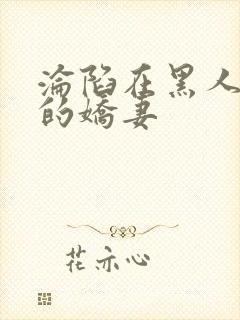 淪陷在黑人
的嬌妻
花亦心